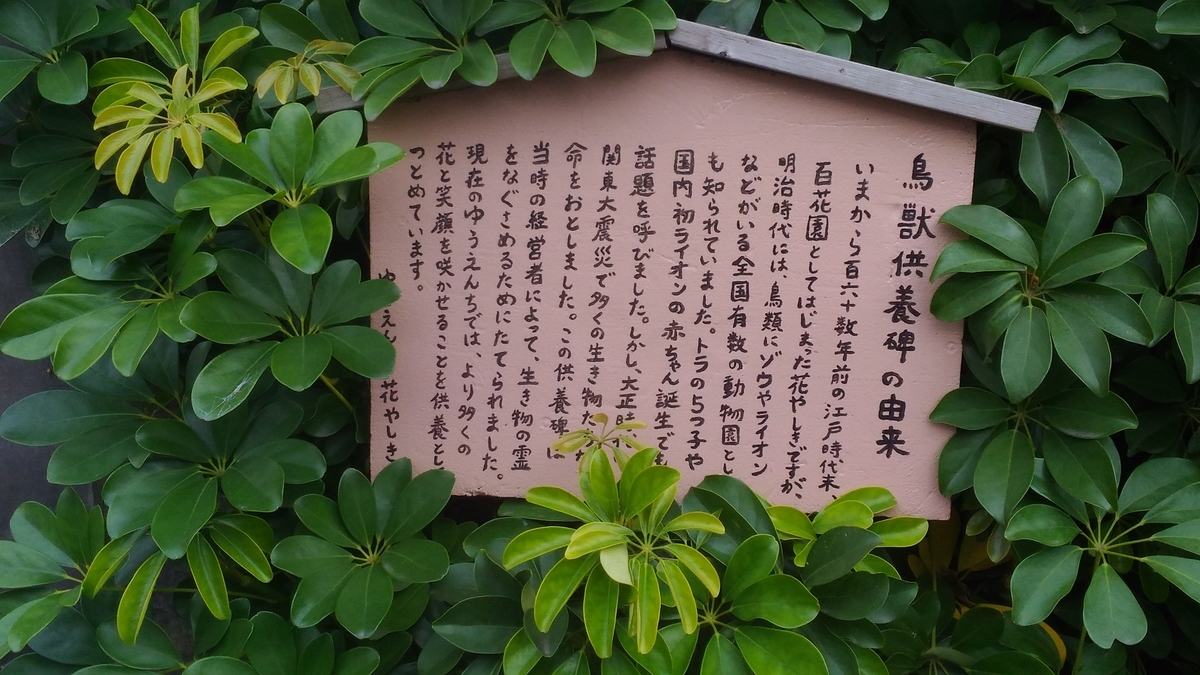 鳥獣供養碑の由来
いまから百六十数年前の江戸時代末、
百花園としてはじまった花やしきですが、
明治時代には、鳥類にゾウやライオン
などがいる全国有数の動物園とし
も知られていました。トラの5つ子や
国内初ライオンの赤ちゃん誕生でも
話題を呼びました。しかし、大正時
関東大震災で多くの生き物た
命をおとしました。この供養碑は
当時の経営者によって、生き物の霊
をなぐさめるためにたてられました。
現在のゆうえんちでは、より多くの
花と笑顔を咲かせることを供養とし
つとめています。
ゆうえん 花やしき